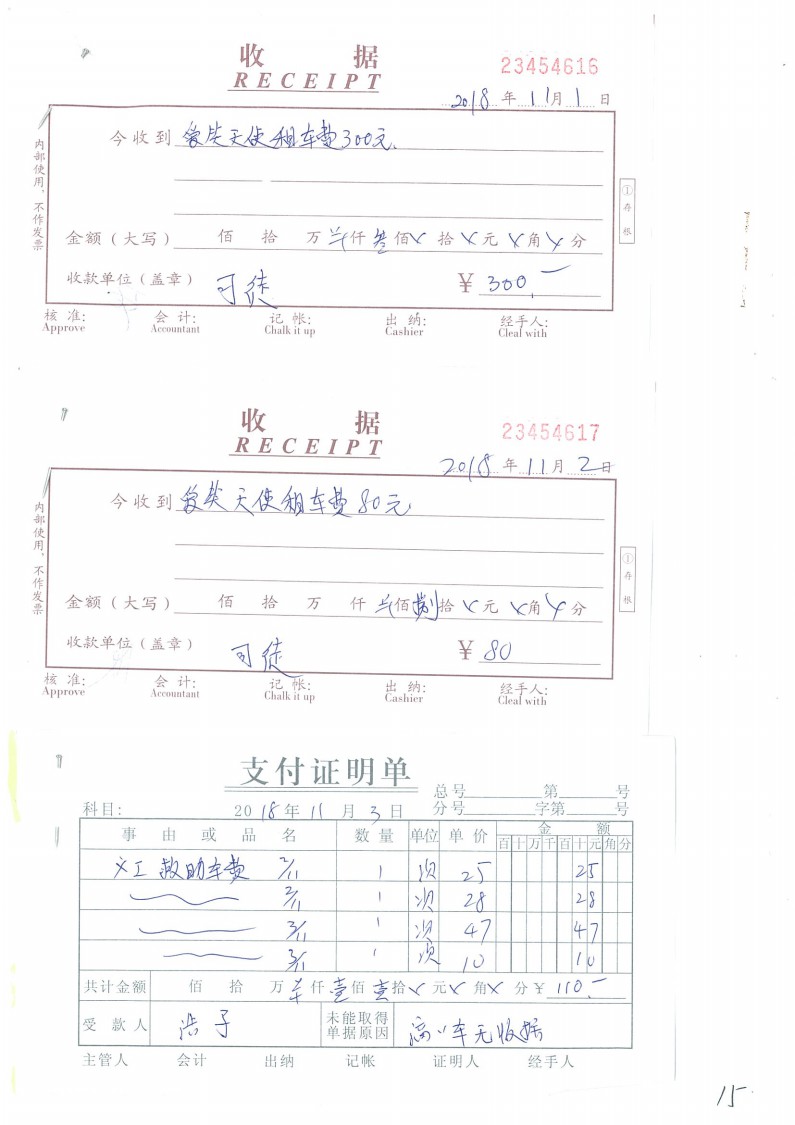 收 据
RECEIPT
23454616
2018 年 11 月 1 日
今收到 爱类天使租车费300元
金额(大写) 佰 拾 万 仟 叁佰 X 拾 X 元 X 角 X 分
收款单位(盖章) 司徒 ¥ 300.-
内部使用,不作发票
① 存根
核 准: 会 计: 记 帐: 出 纳: 经手人:
Approve Accountant Chalk it up Cashier Cleal with
收 据
RECEIPT
23454617
2018 年 11 月 2 日
今收到 爱类天使租车费80元
金额(大写) 佰 拾 万 仟 佰 捌 拾 X 元 X 角 X 分
收款单位(盖章) 司徒 ¥ 80
内部使用,不作发票
① 存根
核 准: 会 计: 记 帐: 出 纳: 经手人:
Approve Accountant Chalk it up Cashier Cleal with
支付证明单
总号 第 号
科目: 2018 年 11 月 3 日 分号 字第 号
事 由 或 品 名 数 量 单位 单 价 金 额
百 十 万 千 百 十 元 角 分
义工救助车费 2/11 1 次 25 25
2/11 1 次 28 28
3/11 1 次 47 47
3/11 1 次 10 10
共计金额 佰 拾 万 仟 壹 佰 壹 拾 X 元 X 角 X 分 ¥ 110.-
受 款 人 浩子 未能取得单据原因 车无收据
主管人 会计 出纳 记帐 证明人 经手人
15